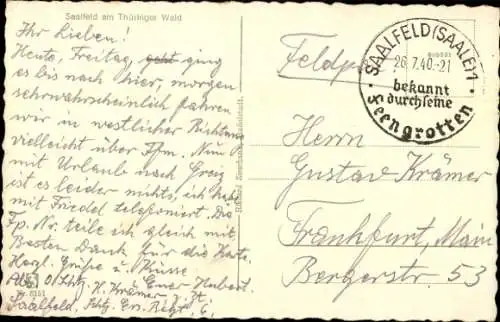 Saalfeld am Thüringer Wald
Ihr Lieben!
Heute, Freitag, geht ging
es bis nach hier, morgen
sehrwahrscheinlich fahren
wir in westlicher Richtung
vielleicht über Ffm. Nun
mit Urlaub nach Greiz
ist es leider nichts, ich hab
mit Friedel telefoniert. Die
Fp. Nr. teile ich gleich mit.
Besten Dank für die Karte.
Herzl. Grüße u. Küsse
Euer Hubert.
Abs. O. Schtz. H. Krämer z. Zt.
Saalfeld, Schtz. Ers. Regt. 6.
SAALFELD (SAALE) 1
26.7.40.-21
bekannt
durch seine
Feengrotten
Feldpost
Herrn
Gustav Krämer
Frankfurt, Main
Bergerstr. 53